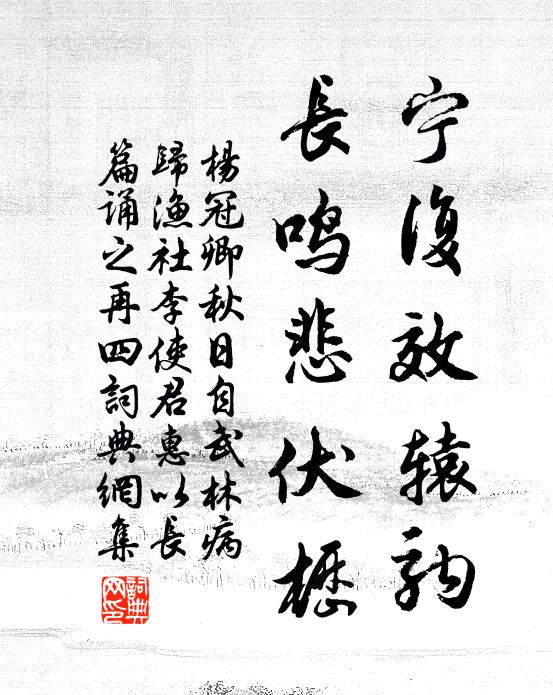 宁復效辕駒
長鸣悲伏櫪
楊冠卿秋日自武林病
歸渔社李使君惠以長
篇诵之再四詞典網集
詞典网印